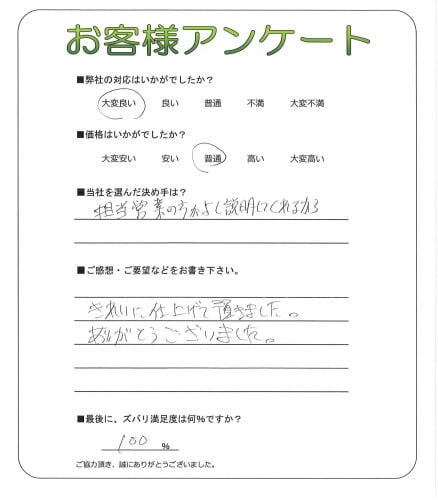 お客様アンケート
■弊社の対応はいかがでしたか？
大変良い 良い 普通 不満 大変不満
■価格はいかがでしたか？
大変安い 安い 普通 高い 大変高い
■当社を選んだ決め手は？
担当営業の方がよし説明してくれるから
■ご感想・ご要望などをお書き下さい。
きれいに仕上げて頂きました。
ありがとうございました。
■最後に、ズバリ満足度は何％ですか？
100 ％
ご協力頂き、誠にありがとうございました。